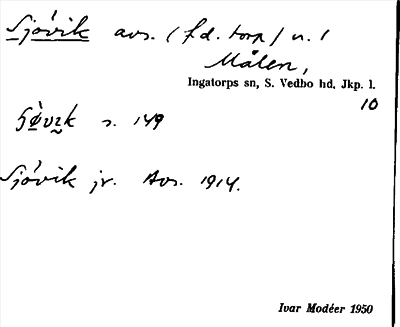 Sjövik avs. (f.d. torp) u. /
Målen,
Ingatorps sn, S. Vedbo hd, Jkp. l.
10
s. 149
Sjövik jr. Avs. 1914.
Ivar Modéer 1950